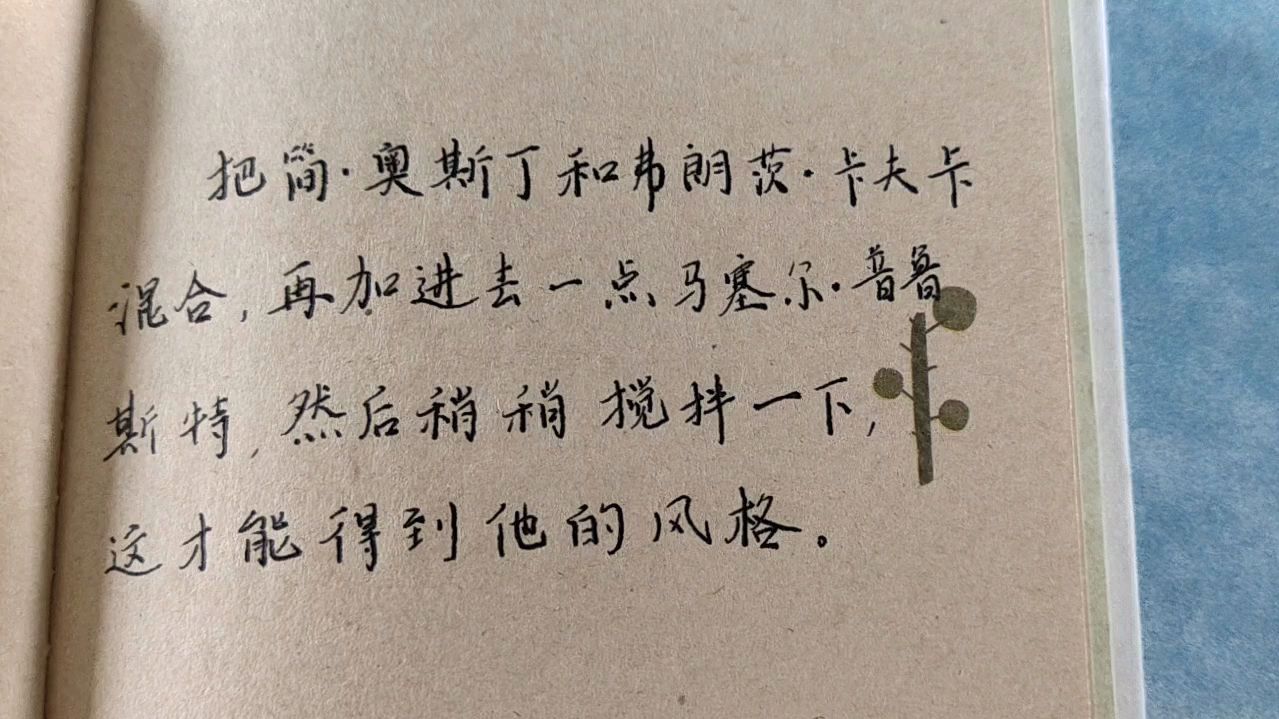 把简·奥斯丁和弗朗茨·卡夫卡
混合,再加进去一点马塞尔·普鲁
斯特,然后稍稍搅拌一下,
这才能得到他的风格。